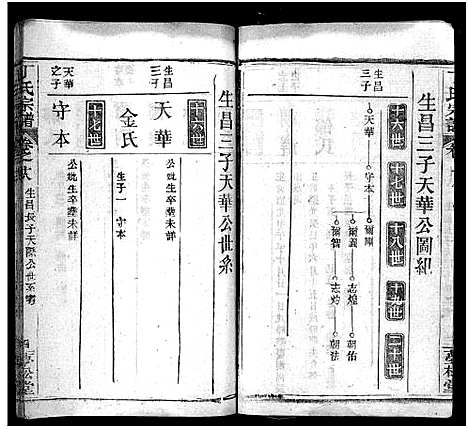 生昌三子天華公圖紀
十六世
十七世
十八世
十九世
二十世
生昌三子
天華
守本
爾剛
爾義
志煌
朝佑
爾智
志灼
朝法
生昌三子天華公世系
十六世
生昌三子
天華
公生卒塟未詳
金氏
生子一 守本
十七世
天華之子
守本
公妣生卒塟未詳
丁氏宗譜
卷之
生昌長子天際公世系